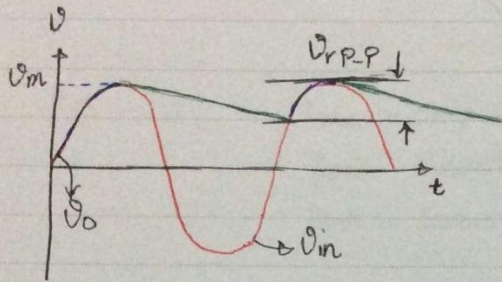 v
v_m
v_r P-P
t
v_o
v_in